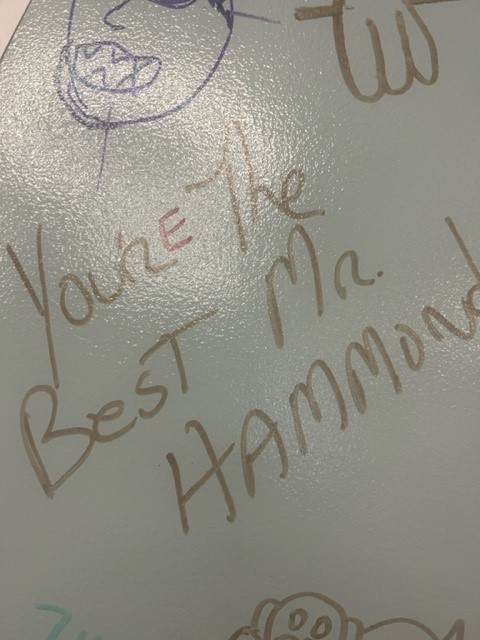 You'rE The
BesT Mr.
HAMMOND